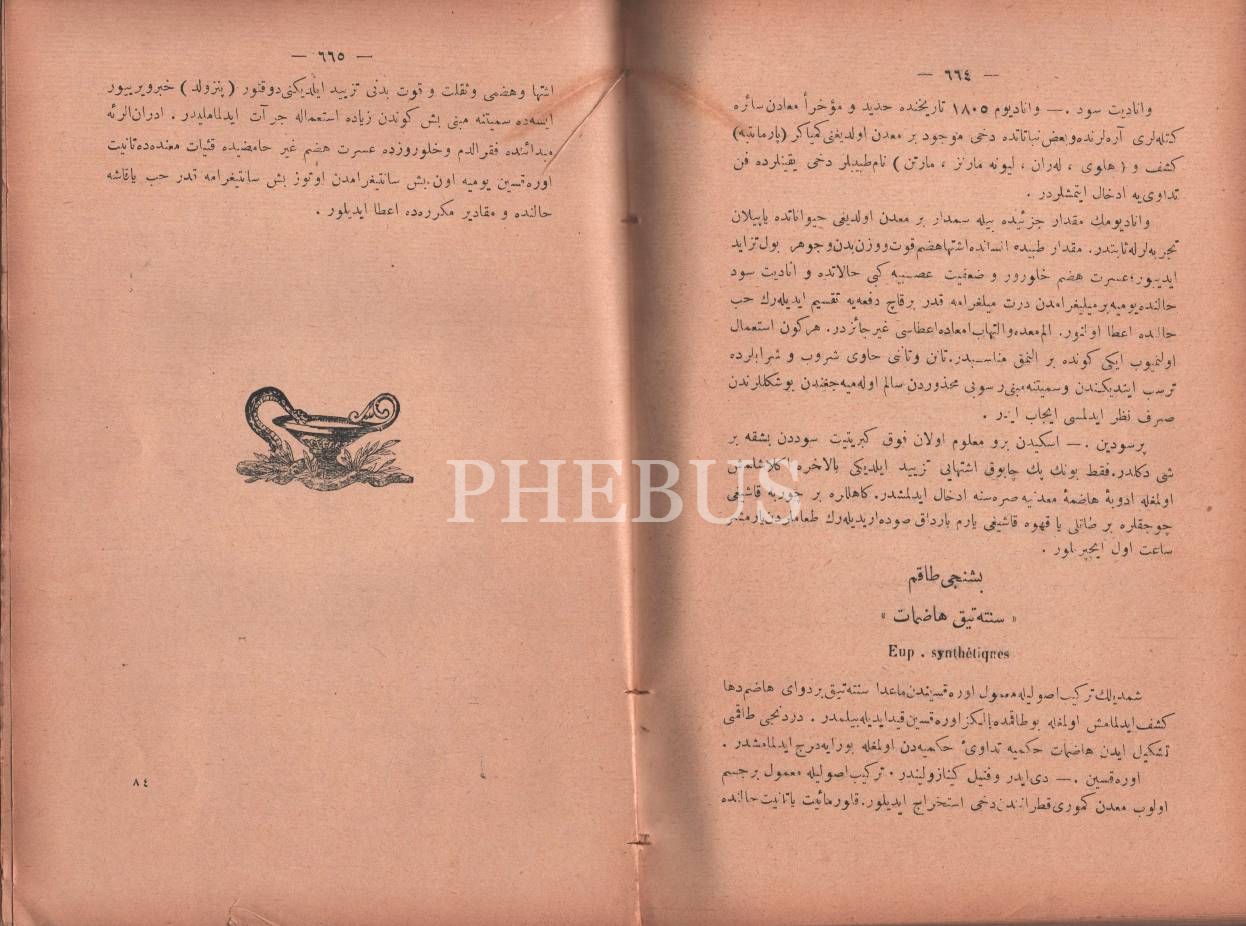 — ٦٦٤ —
وانادیت سود .— وانادیوم ١٨٠٥ تاریخنده حدید و مؤخراً معادن سائره
كتله‌لری آره‌لرنده وبعض نباتاتده دخی موجود بر معدن اولدیغنی كمیاكر (پارمانتیه)
كشف و ( هلوی ، له‌ران ، لیونه مارتز ، مارتن ) نام طبیبلر دخی یقینلرده فن
تداوی‌یه ادخال ایتمشلردر .
وانادیومك مقدار جزئیده بیله سمدار بر معدن اولدیغی حیواناتده یاپیلان
تجربه‌لرله ثابتدر. مقدار طبیده انسانده اشتها هضم قوت ووزن بدن وجوهر بول تزاید
ایدییور؛ عسرت هضم خلورور و ضعفیت عصبیه كبی حالاتده و انادیت سود
حالنده یومیه بر میلیغرامدن درت میلغرامه قدر برقاچ دفعه‌یه تقسیم ایدیله‌رك حب
حالنده اعطا اولنور. الم معده والتهاب امعاده اعطاسی غیر جائزدر. هركون استعمال
اولنمیوب ایكی كونده بر النمق مناسبدر. تانن وتانی حاوی شروب و شرابلرده
ترسب ایتدیكندن وسمیتنه مبنی رسوبی محذوردن سالم اوله‌میه‌جغندن بوشكللرندن
صرف نظر ایدلمسی ایجاب ایدر .
پرسودین .— اسكیدن برو معلوم اولان فوق كبریتیت سوددن بشقه بر
شی دكلدر. فقط بونك پك چابوق اشتهایی تزیید ایلدیكی بالاخره اكلاشلمش
اولمغله ادویهٔ هاضمهٔ معدنیه صره‌سنه ادخال ایدلمشدر. كاهللره بر چوربه قاشیغی
چوجقلره بر طاتلی یا قهوه قاشیغی یارم بارداق صوده اریدیله‌رك طعاملردن یارمشر
ساعت اول ایچیریلور .
بشنجی طاقم
« سنته‌تیق هاضمات »
Eup . synthétiques
شمدیلك تركیب اصولیله معمول اوره‌قسیندن ماعدا سنته‌تیق بر دوای هاضم دها
كشف ایدلمامش اولمغله بو طاقمده یالكز اوره‌قسین قید ایدیله بیلمدر . دردنجی طاقمی
تشكیل ایدن هاضمات حكمیه تداوئ حكمیه‌دن اولمغله بورایه درج ایدلمامشدر .
اوره‌قسین .— دی‌ایدر وفنیل كینازولیندر . تركیب اصولیله معمول بر جسم
اولوب معدن كموری قطرانندن دخی استخراج ایدیلور. قلورمائیت یا تانیت حالنده
— ٦٦٥ —
اشتها وهضمی وثقلت و قوت بدنی تزیید ایلدیكنی دوقتور ( پنزولد ) خبر ویرییور
ایسه‌ده سمیتنه مبنی بش كوندن زیاده استعماله جرآت ایدلماملیدر . ادران الرئه
مبدائنده فقرالدم وخلوروزده عسرت هضم غیر حامضیده قئیات معنده‌ده تانیت
اوره‌قسین یومیه اون بش سانتیغرامدن اوتوز بش سانتیغرامه قدر حب یا قاشه
حالنده و مقادیر مكرره‌ده اعطا ایدیلور .
٨٤
PHEBUS